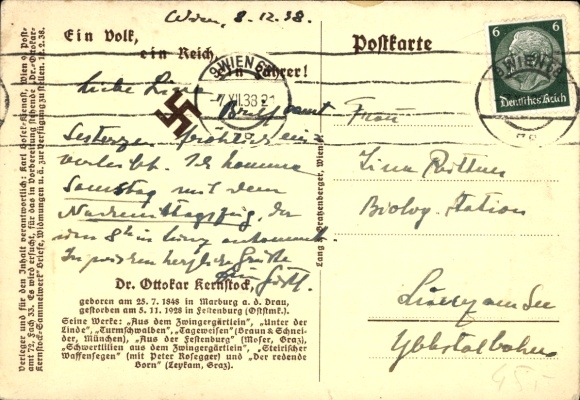 Wien, 8.12.38.
Ein Volk,
ein Reich,
ein Führer!
Liebe Lina
Brief samt
einverleibt. Ich komme
Samstag mit dem
Nachmittagszug, der
um 8h in Lunz ankommt.
herzliche Grüße
Dr. Ottokar Kernstock,
geboren am 25. 7. 1848 in Marburg a. d. Drau,
gestorben am 5. 11. 1928 in Festenburg (Oststmk.).
Seine Werke: „Aus dem Zwingergärtlein", „Unter der
Linde", „Turmschwalben", „Tageweisen" (Braun & Schnei-
der, München), „Aus der Festenburg" (Moser, Graz),
„Schwertlilien aus dem Zwingergärtlein", „Steirischer
Waffensegen" (mit Peter Rosegger) und „Der redende
Born" (Leykam, Graz).
Verleger und für den Inhalt verantwortlich: Karl Hofer-Kernast, Wien 9, Post-
amt 72, Fach 33. Es wird ersucht, für das in Vorbereitung stehende „Dr.-Ottokar-
Kernstock-Sammelwert" Briefe, Widmungen u. a. zur Verfügung zu stellen. 10. 2. 38.
Lang & Gratzenberger, Wien
Postkarte
9 WIEN 66
7.XII.38 21
WIEN
6 6
Deutsches Reich
Frau
Lina
Biolog. Station
Lunz am See
Ybbstalbahn
45,-